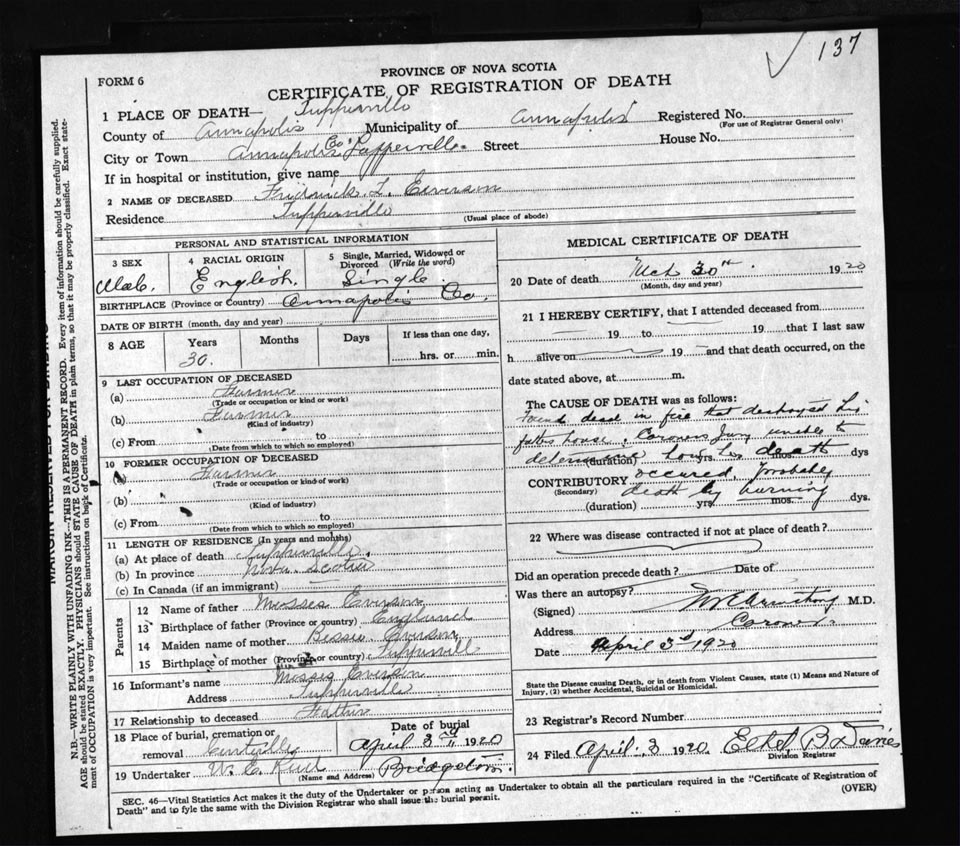 137
FORM 6
PROVINCE OF NOVA SCOTIA
CERTIFICATE OF REGISTRATION OF DEATH
1 PLACE OF DEATH— Tupperville
County of Annapolis Municipality of Annapolis Registered No.
(For use of Registrar General only)
City or Town Annapolis Co. Tupperville Street House No.
If in hospital or institution, give name
2 NAME OF DECEASED Fredrick L. Everson
Residence Tupperville
(Usual place of abode)
PERSONAL AND STATISTICAL INFORMATION
3 SEX 4 RACIAL ORIGIN 5 Single, Married, Widowed or Divorced (Write the word)
Male. English. Single
BIRTHPLACE (Province or Country) Annapolis Co.
DATE OF BIRTH (month, day and year)
8 AGE Years Months Days If less than one day,
30. hrs. or min.
9 LAST OCCUPATION OF DECEASED
(a) Farmer
(Trade or occupation or kind or work)
(b) Farmer
(Kind of industry)
(c) From to
(Date from which to which so employed)
10 FORMER OCCUPATION OF DECEASED
(a) Farmer
(Trade or occupation or kind of work)
(b)
(Kind of industry)
(c) From to
(Date from which to which so employed)
11 LENGTH OF RESIDENCE (In years and months)
(a) At place of death Tupperville.
(b) In province Nova Scotia
(c) In Canada (if an immigrant)
Parents
12 Name of father Mosses Everson
13 Birthplace of father (Province or country) England
14 Maiden name of mother Bessie Everson
15 Birthplace of mother (Province or country) Tupperville
16 Informant's name Mosses Everson
Address Tupperville
17 Relationship to deceased Father
18 Place of burial, cremation or removal Date of burial
April 3rd 1920
19 Undertaker W. E. Bridgetown
(Name and Address)
MEDICAL CERTIFICATE OF DEATH
20 Date of death Mch 30th. 1920
(Month, day and year)
21 I HEREBY CERTIFY, that I attended deceased from
19 to 19 that I last saw
h alive on 19 and that death occurred, on the
date stated above, at m.
The CAUSE OF DEATH was as follows:
Found dead in fire that destroyed his
fathers house. Coroners Jury unable to
determine how his death
(duration) yrs. dys
CONTRIBUTORY occured. Probably
(Secondary) death by burning
(duration) yrs. mos. dys.
22 Where was disease contracted if not at place of death?
Did an operation precede death? Date of
Was there an autopsy?
(Signed) Armstrong M.D.
Address Coroner.
Date April 3rd 1920
State the Disease causing Death, or in death from Violent Causes, state (1) Means and Nature of
Injury, (2) whether Accidental, Suicidal or Homicidal.
23 Registrar's Record Number
24 Filed April 3 1920. Ethel B Davies
Division Registrar
SEC. 46—Vital Statistics Act makes it the duty of the Undertaker or person acting as Undertaker to obtain all the particulars required in the "Certificate of Registration of
Death" and to fyle the same with the Division Registrar who shall issue the burial permit.
(OVER)
N.B.—WRITE PLAINLY WITH UNFADING INK—THIS IS A PERMANENT RECORD. Every item of information should be carefully supplied.
AGE should be stated EXACTLY. PHYSICIANS should STATE CAUSE OF DEATH in plain terms, so that it may be properly classified. Exact state-
ment of OCCUPATION is very important. See instructions on back of Certificate.